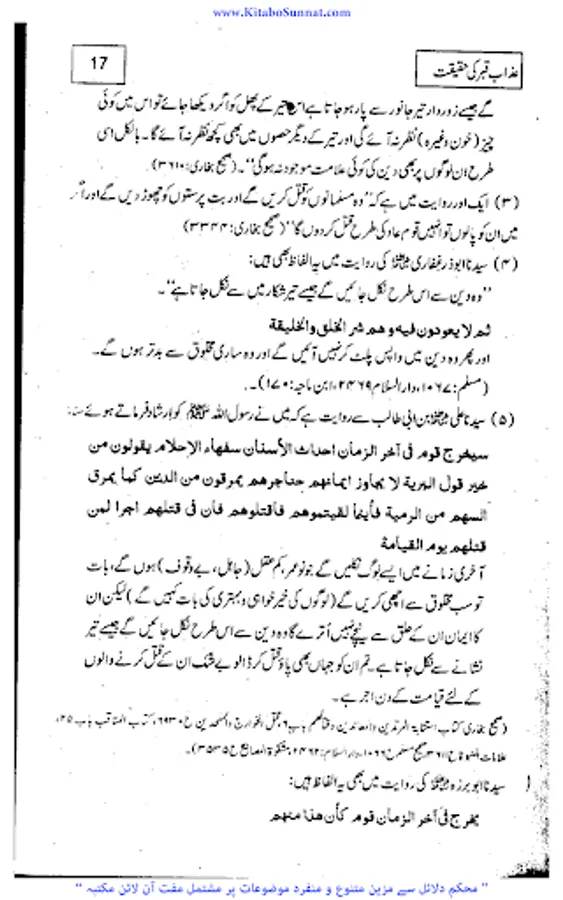 www.KitaboSunnat.com
عذاب قبر کی حقیقت
17
گے جیسے زوردار تیر جانور سے پار ہو جاتا ہے اس تیر کے پھل کو اگر دیکھا جائے تو اس میں کوئی
چیز (خون وغیرہ) نظر نہ آئے گی اور تیر کے دیگر حصوں میں بھی کچھ نظر نہ آئے گا۔ بالکل اسی
طرح ان لوگوں پر بھی دین کی کوئی علامت موجود نہ ہوگی"۔ (صحیح بخاری: ۳۶۱۰)
(۳) ایک اور روایت میں ہے کہ "وہ مسلمانوں کو قتل کریں گے اور بت پرستوں کو چھوڑ دیں گے اور اگر
میں ان کو پالوں تو انہیں قوم عاد کی طرح قتل کردوں گا" (صحیح بخاری: ۳۳۴۴)
(۴) سیدنا ابوذر غفاری ؓ کی روایت میں یہ الفاظ بھی ہیں:
"وہ دین سے اس طرح نکل جائیں گے جیسے تیر شکار میں سے نکل جاتا ہے"۔
ثم لا یعودون فیه وهم شر الخلق والخلیقة
اور پھر وہ دین میں واپس پلٹ کر نہیں آئیں گے اور وہ ساری مخلوق سے بدتر ہوں گے۔
(مسلم: ۱۰۶۷، دارالسلام ۲۴۶۹، ابن ماجہ: ۱۷۰)۔
(۵) سیدنا علی ؓ بن ابی طالب سے روایت ہے کہ میں نے رسول اللہ ﷺ کو ارشاد فرماتے ہوئے سنا:
سیخرج قوم فی آخر الزمان احداث الأسنان سفهاء الإحلام یقولون من
خیر قول البریة لا یجاوز ایمانهم حناجرهم یمرقون من الدین کما یمرق
السهم من الرمیة فأینما لقیتموهم فأقتلوهم فأن فی قتلهم اجرا لمن
قتلهم یوم القیامة
آخری زمانے میں ایسے لوگ نکلیں گے جو نو عمر، کم عقل (جاہل، بے وقوف) ہوں گے، بات
تو سب مخلوق سے اچھی کریں گے (لوگوں کی خیر خواہی و بہتری کی بات کہیں گے) لیکن ان
کا ایمان ان کے حلق سے نیچے نہیں اُترے گا وہ دین سے اس طرح نکل جائیں گے جیسے تیر
نشانے سے نکل جاتا ہے۔ تم ان کو جہاں بھی پاؤ قتل کر ڈالو بے شک ان کے قتل کرنے والوں
کے لئے قیامت کے دن اجر ہے۔
(صحیح بخاری کتاب استتابۃ المرتدین والمعاندین وقتالهم باب ۶ قتل الخوارج والملحدین ح ۶۹۳۰، کتاب المناقب باب ۲۵،
علامات النبوۃ ح ۳۶۱۱ صحیح مسلم ح ۱۰۶۶، دارالسلام: ۲۴۶۲، مشکوٰۃ المصابیح ح ۳۵۳۵)۔
سیدنا ابو برزہ ؓ کی روایت میں بھی یہ الفاظ ہیں:
یخرج فی آخر الزمان قوم کأن هذا منهم
" محکم دلائل سے مزین متنوع و منفرد موضوعات پر مشتمل مفت آن لائن مکتبہ "